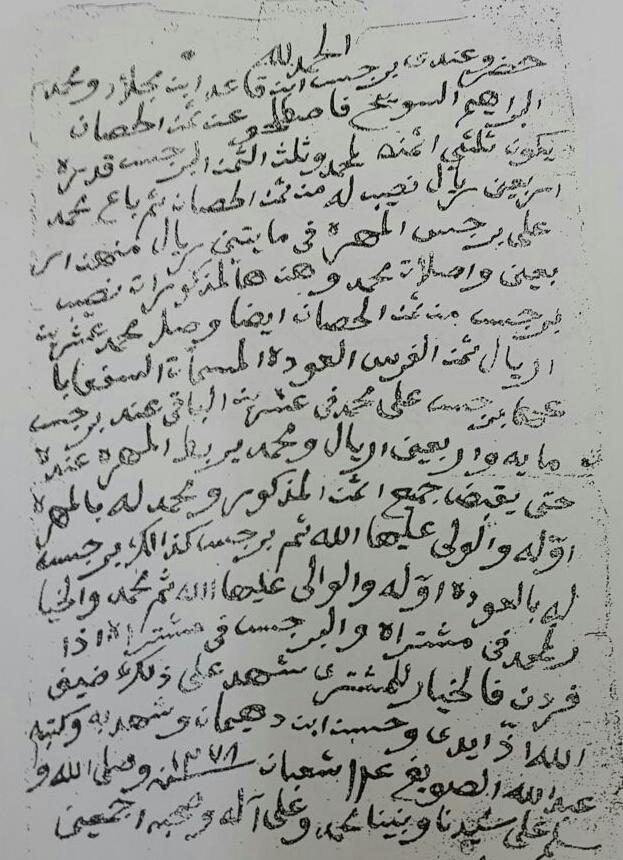 الحمد لله
حضرو عندي برجس ابن قاعد ابن مجلاد ومحمد
البراهيم السويح فاصطلحو عن ثمن الحصان
يكون ثلثي اثمنه لمحمد وثلث الثمن البرجس قدره
اربعين ريال نصيب له من ثمن الحصان ثم باع محمد
على برجس المهره في مايتين ريال منهن ار
بعين واصلات محمد وهن هالمذكورات نصيب
برجس من ثمن الحصان ايضا وصل محمد عشرين
اريال ثمن الفرس العوده المسمات
برجس على محمد في عشرين الباقي عند برجس
مايه واربعين اريال ومحمد يربط المهره عنده
حتى يقبض جميع اثمن المذكور ومحمد له بالمهره
اوّله والولي عليها الله ثم برجس كذالك برجس
له بالعوده اوّله والوالي عليها الله ثم محمد والخيا
ر لمحمد في مشتراه والبرجس في مشتراه اذا
فالخيار للمشتري شهد على ذلك ضيف
الله وحسن ابن دهيمان وشهد به وكتبه
عبد الله الصويغ شعبان سنة ١٢٧٨ وصلى الله و
سلم على سيدنا ونبينا محمد وعلى آله وصحبه اجمعين